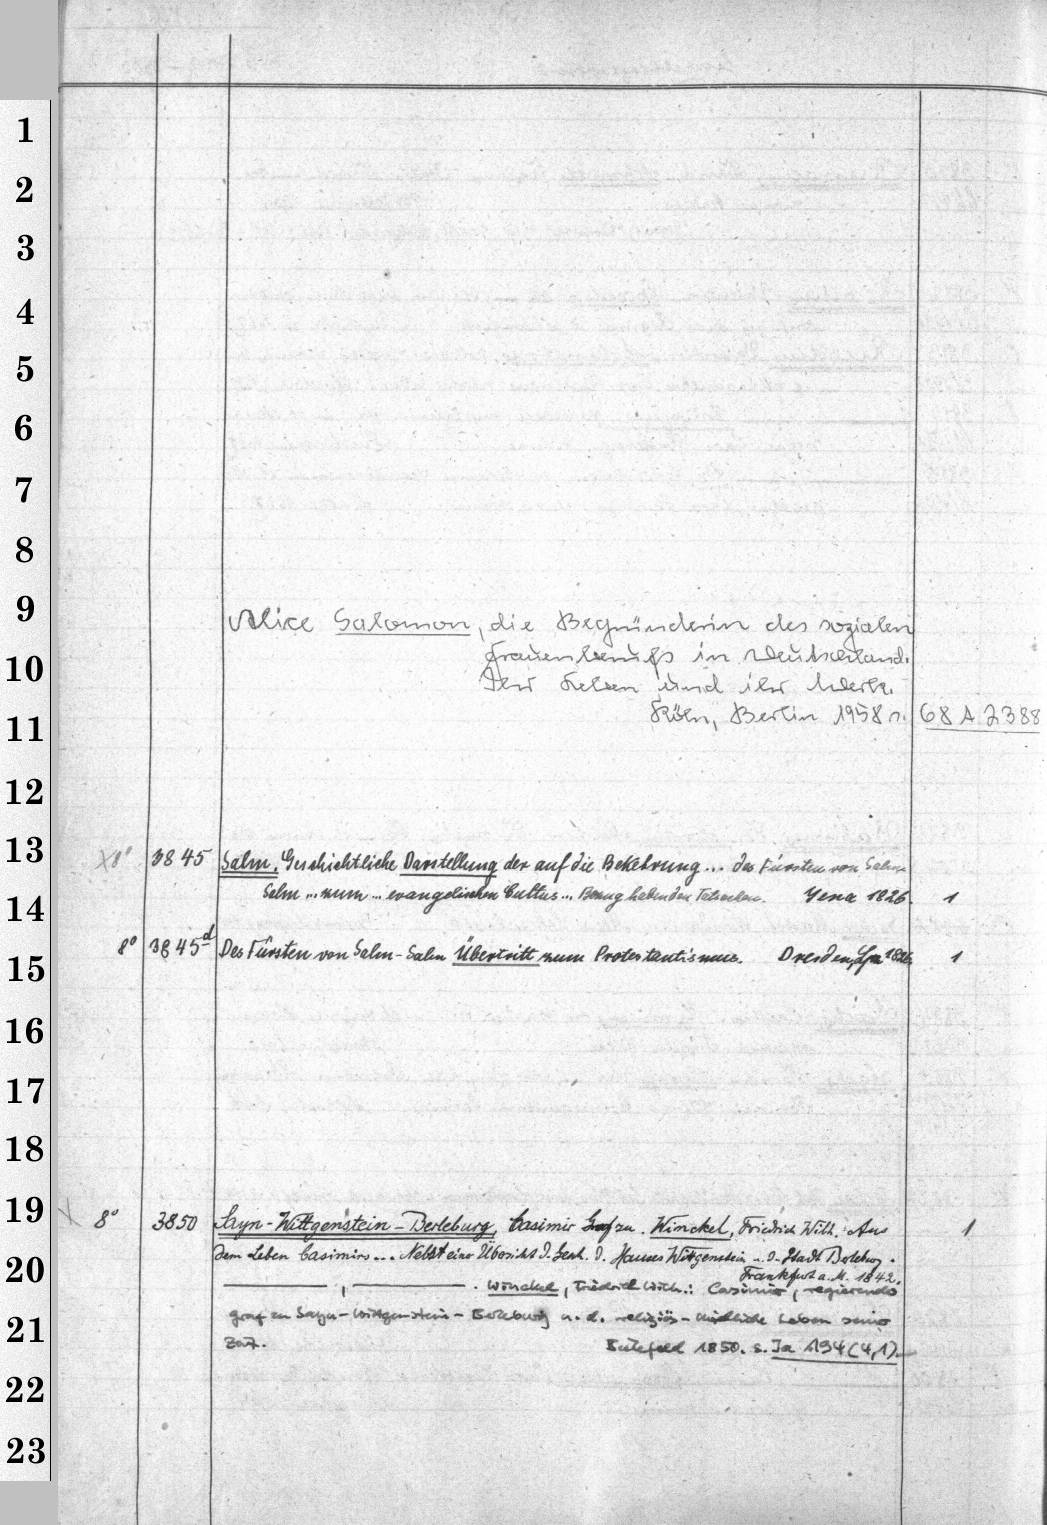 1
2
3
4
5
6
7
8
9
Alice Salomon, die Begründerin des sozialen
10
Frauenberufs in Deutschland.
Ihr Leben und ihr Werk.
11
Köln, Berlin 1958 68 A 2388
12
13
X8° 3845 Salm. Geschichtliche Darstellung der auf die Bekehrung... des Fürsten von Salm-
14
Salm... zum... evangelischen Cultus... Bezug habenden Tatsachen. Jena 1826. 1
15
8° 3845d Des Fürsten von Salm-Salm Übertritt zum Protestantismus. Dresden, 1826. 1
16
17
18
19
X 8° 3850 Sayn-Wittgenstein-Berleburg, Casimir Graf zu. Winckel, Friedrich Wilh.: Aus 1
20
dem Leben Casimirs... Nebst einer Übersicht d. Gesch. d. Hauses Wittgenstein .. d. Stadt Berleburg.
Frankfurt a. M. 1842.
———, ———. Winckel, Friedrich Wilh.: Casimir, regierender
21
Graf zu Sayn-Wittgenstein-Berleburg u. d. religiös-kirchliche Leben seiner
Zeit. Bielefeld 1850. s. Ja 194 (4,1).
22
23